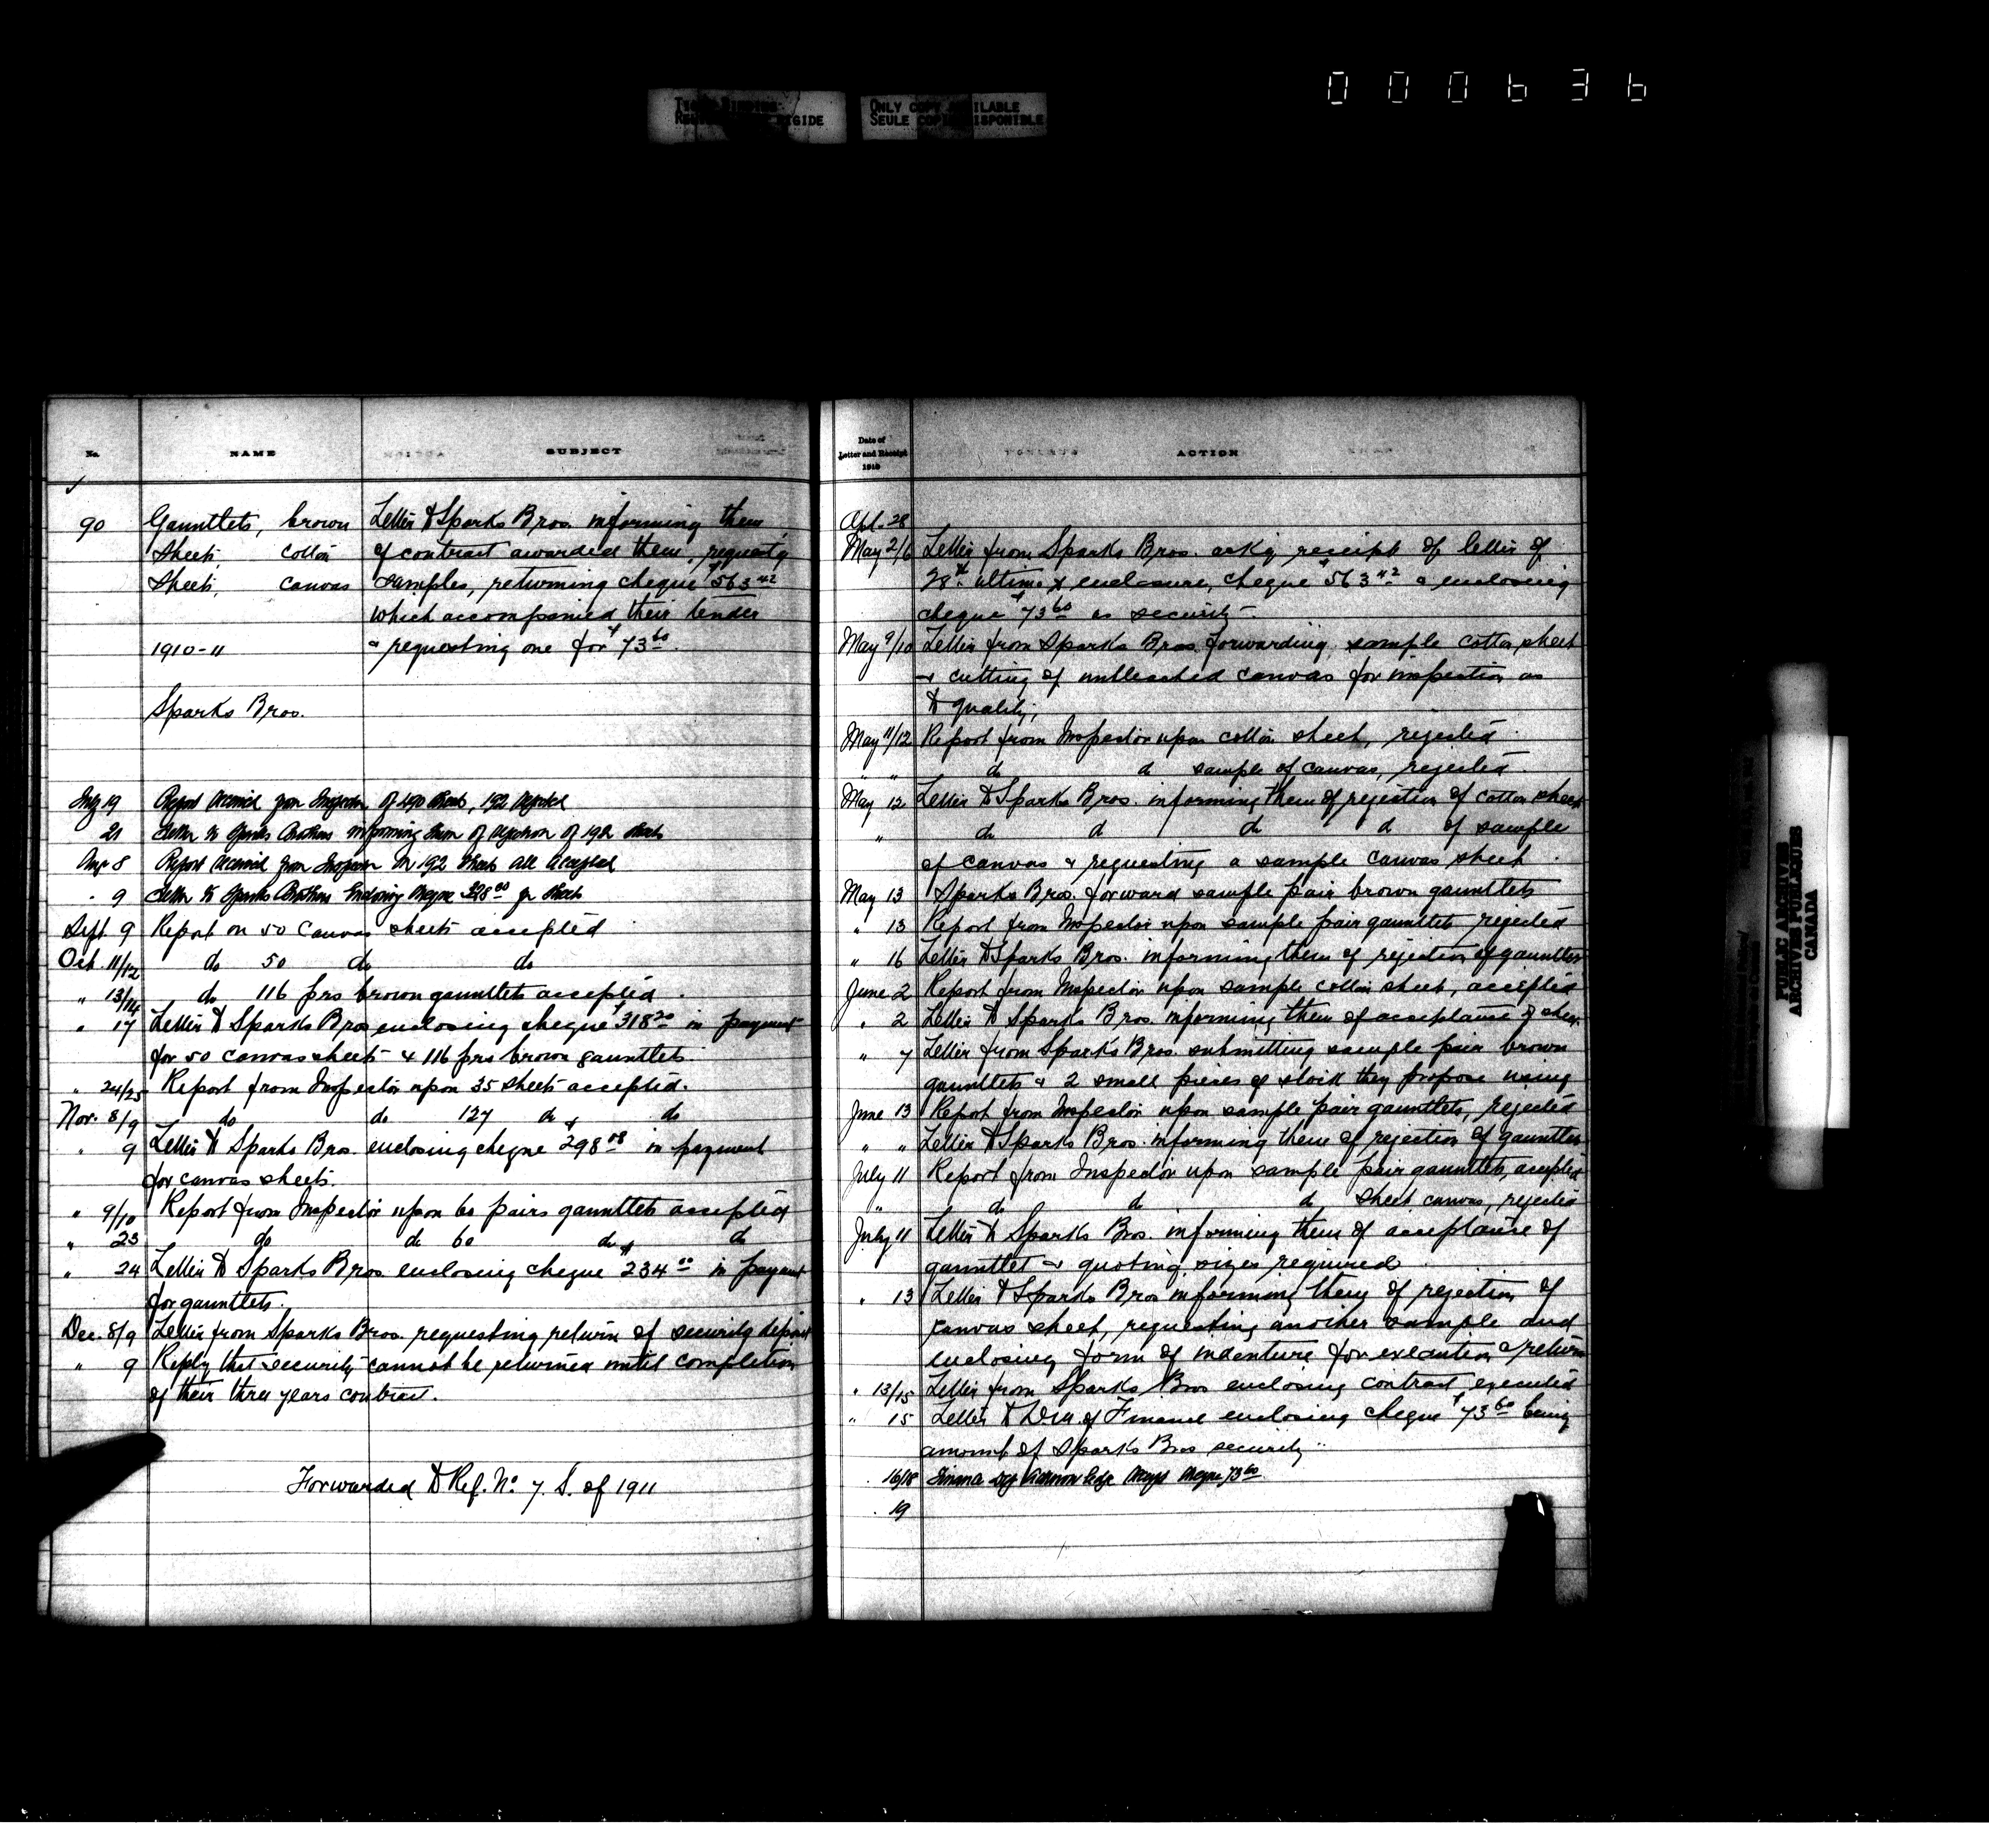 000636
ONLY COPY AVAILABLE
SEULE COPIE DISPONIBLE
No. NAME SUBJECT
90 Gauntlets, brown Letter to Sparks Bros. informing them
Sheets, cotton of contract awarded them, requestg
Sheets, canvas samples, returning cheque $563.42
which accompanied their tender
1910-11 & requesting one for $73.60.
Sparks Bros.
July 19 Report received from Inspector of 490 sheets, 192 rejected
21 Letter to Sparks Brothers informing them of rejection of 192 sheets
Aug 8 Report received from Inspector on 192 sheets all accepted
" 9 Letter to Sparks Brothers enclosing cheque for sheets
Sept. 9 Report on 50 canvas sheets accepted
Oct. 11/12 do 50 do do
" 13/14 do 116 prs brown gauntlets accepted.
" 17 Letter to Sparks Bros enclosing cheque $318.20 in payment
for 50 canvas sheets & 116 prs brown gauntlets.
" 24/25 Report from Inspector upon 35 sheets accepted.
Nov. 8/9 do do 127 do do
" 9 Letter to Sparks Bros. enclosing cheque $298.08 in payment
for canvas sheets.
" 9/10 Report from Inspector upon 60 pairs gauntlets accepted
" 23 do do 60 do do
" 24 Letter to Sparks Bros. enclosing cheque $234.00 in payment
for gauntlets.
Dec. 8/9 Letter from Sparks Bros. requesting return of security deposit
" 9 Reply that security cannot be returned until completion
of their three years contract.
Forwarded to Ref. No. 7. S. of 1911
Date of
Letter and Receipt
1910
ACTION
Apl. 28
May 2/6 Letter from Sparks Bros. ackg receipt of letter of
28th ultimo & enclosure, cheque $563.42 & enclosing
cheque $73.60 as security.
May 9/10 Letter from Sparks Bros. forwarding sample cotton sheet
& cutting of unbleached canvas for inspection as
to quality.
May 11/12 Report from Inspector upon cotton sheet, rejected.
" " do do sample of canvas, rejected.
May 12 Letter to Sparks Bros. informing them of rejection of cotton sheet
" do do do do of sample
of canvas & requesting a sample canvas sheet.
May 13 Sparks Bros. forward sample pair brown gauntlets
" 13 Report from Inspector upon sample pair gauntlets rejected
" 16 Letter to Sparks Bros. informing them of rejection of gauntlets
June 2 Report from Inspector upon sample cotton sheet, accepted
" 2 Letter to Sparks Bros. informing them of acceptance of sheet
" 7 Letter from Sparks Bros. submitting sample pair brown
gauntlets & 2 small pieces of they propose using
June 13 Report from Inspector upon sample pair gauntlets, rejected
" " Letter to Sparks Bros. informing them of rejection of gauntlets
July 11 Report from Inspector upon sample pair gauntlets, accepted
" do do do sheet canvas, rejected
July 11 Letter to Sparks Bros. informing them of acceptance of
gauntlet & quoting sizes required
" 13 Letter to Sparks Bros informing them of rejection of
canvas sheet, requesting another sample and
enclosing form of indenture for execution & return
" 13/15 Letter from Sparks Bros enclosing contract executed
" 15 Letter to D.M. of Finance enclosing cheque $73.60 being
amount of Sparks Bros security
16/18 Finance Dep acknowledge receipt cheque 73.60
" 19
PUBLIC ARCHIVES
ARCHIVES PUBLIQUES
CANADA